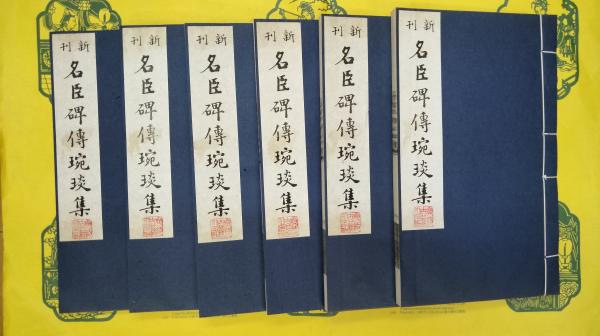 新刊
名臣碑傳琬琰集
新刊
名臣碑傳琬琰集
新刊
名臣碑傳琬琰集
新刊
名臣碑傳琬琰集
新刊
名臣碑傳琬琰集
新刊
名臣碑傳琬琰集